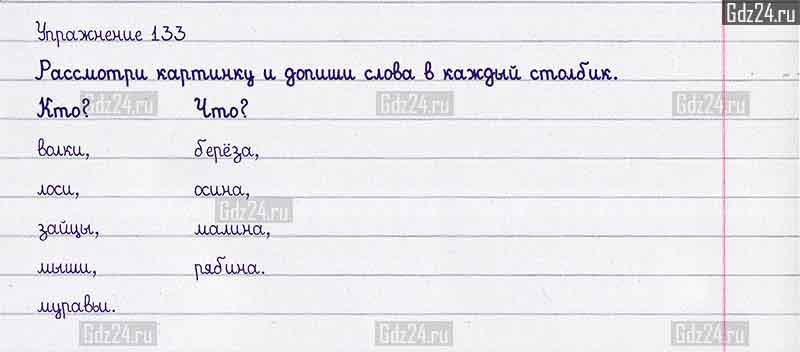 Gdz24.ru
Упражнение 133
Рассмотри картинку и допиши слова в каждый столбик.
Кто? Что?
Gdz24.ru Gdz24.ru Gdz24.ru
волки, берёза,
лоси, осина,
Gdz24.ru
зайцы, малина,
мыши, рябина.
муравьи.
Gdz24.ru Gdz24.ru Gdz24.ru